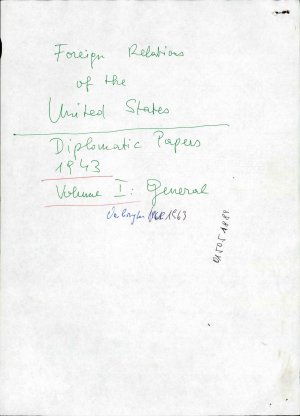 Foreign Relations
of the
United States
Diplomatic Papers
1943
Volume I: General
1963